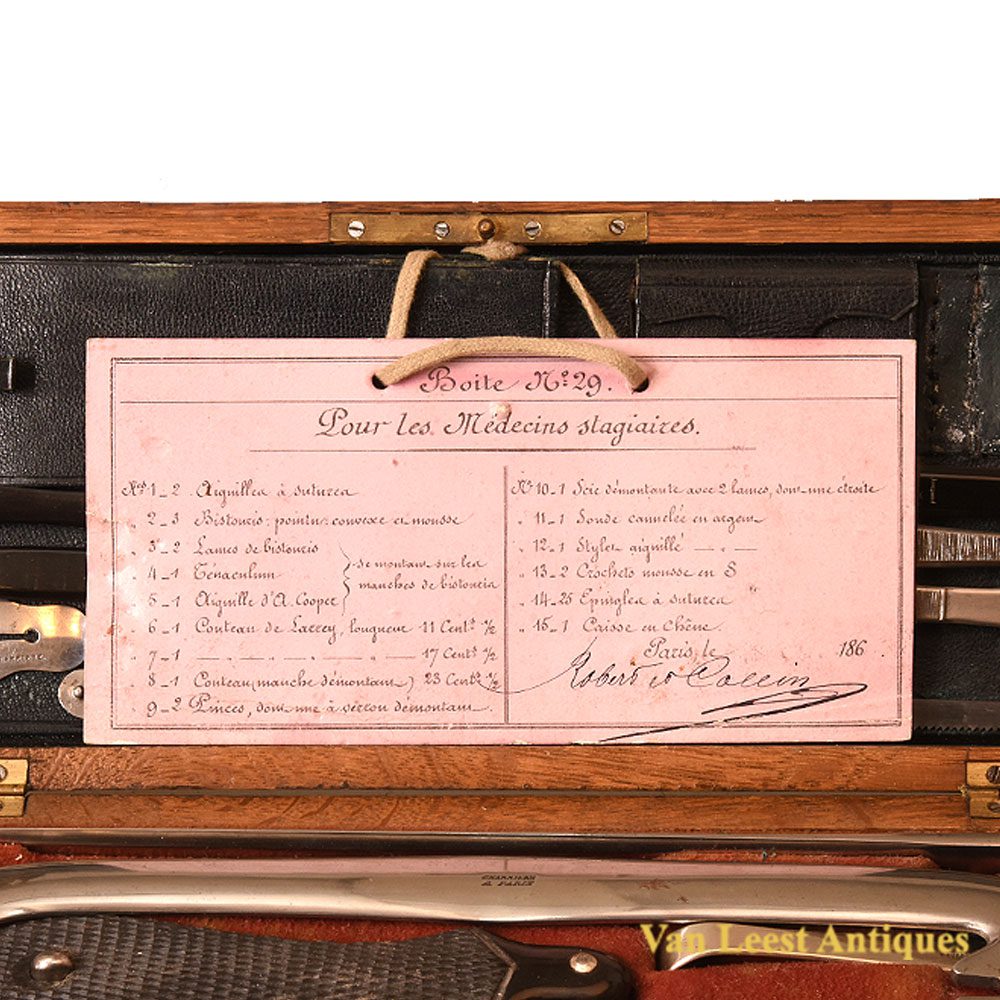 Boite Nº 29.
Pour les Médecins stagiaires.
Nos 1_2 Aiguilles à sutures
„ 2_3 Bistouris: pointu: convexe et mousse
„ 3_2 Lames de bistouris
„ 4_1 Ténaculum
„ 5_1 Aiguille d'A. Cooper
se montant sur les
manches de bistouris
„ 6_1 Couteau de Larrey, longueur 11 Centes ½
„ 7_1 _ „ _ „ _ „ _ 17 Centes ½
„ 8_1 Couteau (manche démontant) 23 Centes ½
9_2 Pinces, dont une à verrou démontant.
Nos 10_1 Scie démontante avec 2 lames, dont une étroite
„ 11_1 Sonde cannelée en argent
„ 12_1 Stylet aiguillé _ „ _
„ 13_2 Crochets mousse en S
„ 14_25 Epingles à sutures
„ 15_1 Caisse en chêne.
Paris, le 186
Robert et Collin
CHARRIÈRE
A PARIS
Van Leest Antiques